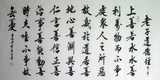 老子道德經
上善若水水善
利萬物而不爭
處衆人之所惡
故幾於道居善
地心善淵與善
仁言善信正善
治事善能動善
時夫唯不爭故
無尤